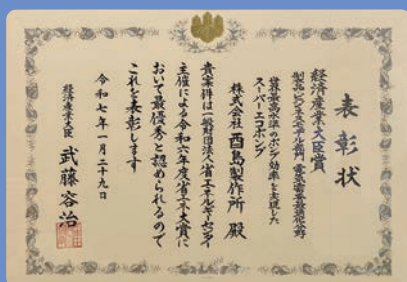 表彰状
経済産業大臣賞
製品・ビジネスモデル部門 電気需要最適化分野
世界最高水準のポンプ効率を実現した
スーパーエコポンプ
株式会社酉島製作所 殿
貴案件は一般財団法人省エネルギーセンター
主催による令和六年度省エネ大賞に
おいて最優秀と認められるので
これを表彰します
令和七年一月二十九日
経済産業大臣 武藤容治